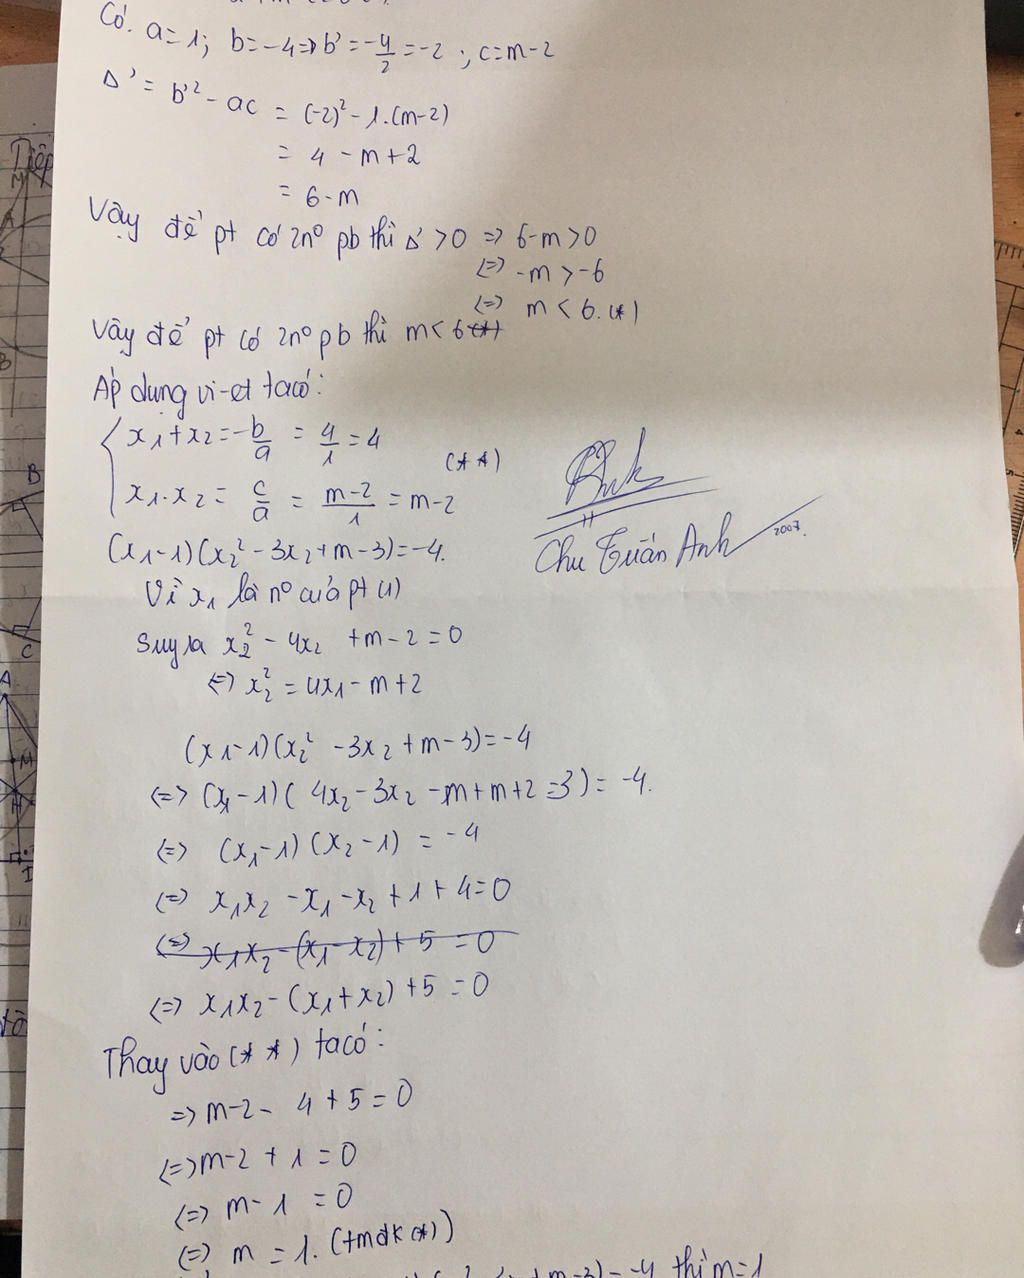 Có. a=1; b=-4=>b'=-4/2=-2; c=m-2
Δ'= b'²-ac = (-2)²-1.(m-2)
= 4-m+2
= 6-m
Vậy để pt có 2n⁰ pb thì Δ'>0 => 6-m>0
<=> -m>-6
<=> m<6.(*)
Vậy để pt có 2n⁰ pb thì m<6(*)
Áp dụng vi-et ta có:
x₁+x₂=-b/a = 4/1 = 4
(**)
x₁.x₂ = c/a = m-2/1 = m-2
Chu Tuấn Anh 2007.
(x₁-1)(x₂²-3x₂+m-3)=-4.
Vì x₁ là n⁰ của pt (1)
Suy ra x₂²-4x₂ +m-2=0
<=> x₂²=4x₁-m+2
(x₁-1)(x₂²-3x₂+m-3)=-4
<=> (x₁-1)(4x₂-3x₂-m+m+2-3)=-4.
<=> (x₁-1)(x₂-1) = -4
<=> x₁x₂-x₁-x₂+1+4=0
<=> x₁x₂-(x₁-x₂)+5=0
<=> x₁x₂-(x₁+x₂)+5=0
Thay vào (**) ta có:
=> m-2-4+5=0
<=> m-2+1=0
<=> m-1=0
<=> m=1. (tmđk(*))
+m-3)=-4 thì m=1
Tiếp
M
B
C
A
M
H
I